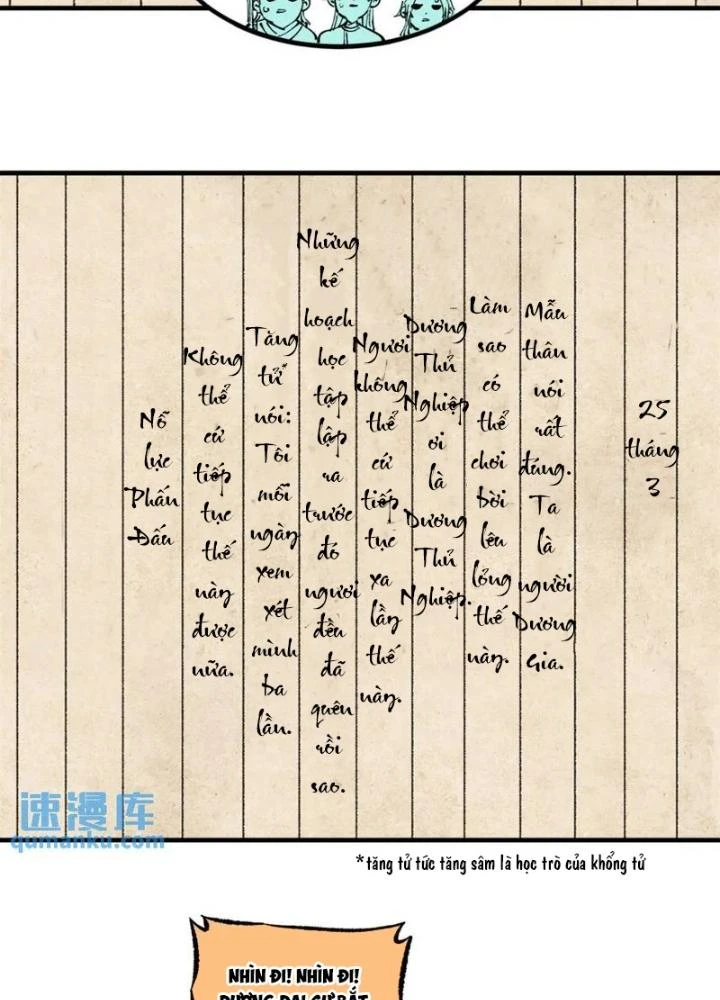 25 tháng 3
Mẫu thân nói rất đúng. Ta là người Dương Gia.
Làm sao có thể chơi bời lêu lỏng thế này.
Dương Thủ Nghiệp ơi là Dương Thủ Nghiệp.
Ngươi không thể cứ tiếp tục xa lầy thế này.
Những kế hoạch học tập lập ra trước đó ngươi đều đã quên rồi sao.
Tăng tử* nói: Tôi mỗi ngày xem xét mình ba lần.
Không thể cứ tiếp tục thế này được nữa.
Nỗ lực Phấn Đấu
速漫库
qumanku.com
*tăng tử tức tăng sâm là học trò của khổng tử
NHÌN ĐI! NHÌN ĐI!
DƯƠNG ĐẠI GIA BẮT